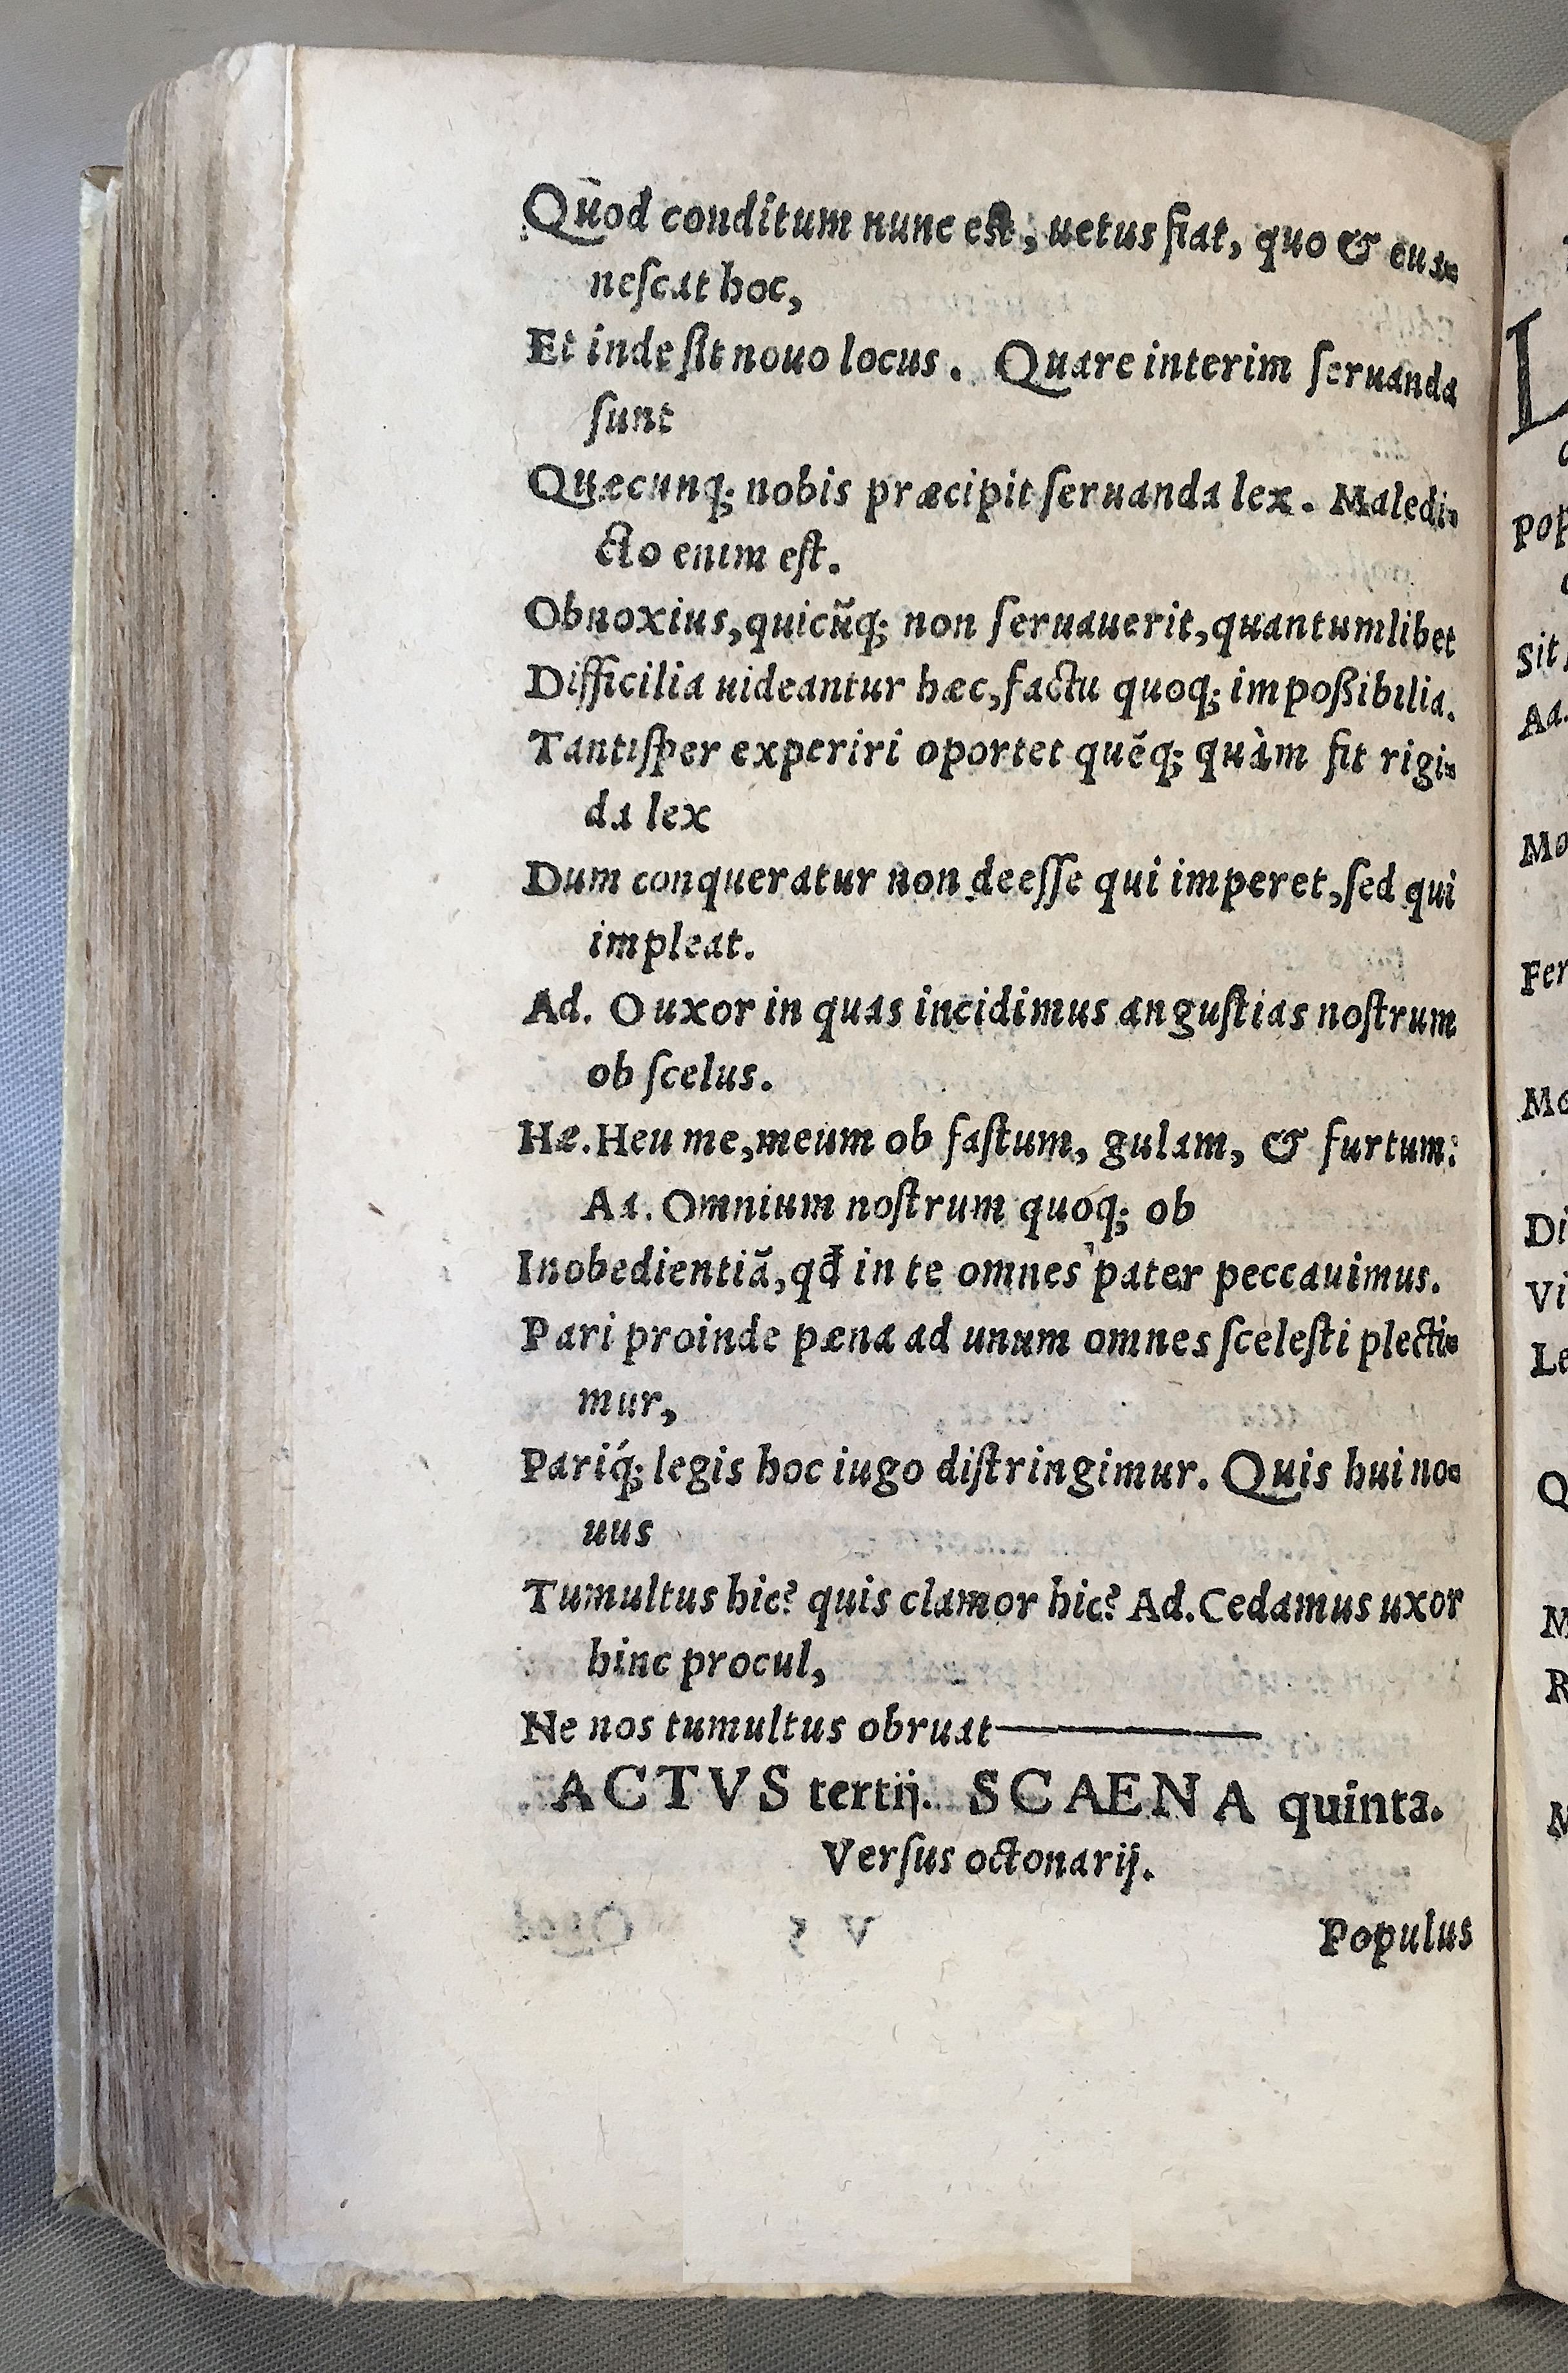 Quod conditum nunc est, uetus fiat, quo & eua-
nescat hoc,
Et inde sit nouo locus. Quare interim seruanda
sunt
Quæcunq; nobis præcipit seruanda lex. Maledi-
cto enim est.
Obnoxius, quicũq; non seruauerit, quantumlibet
Difficilia uideantur hæc, factu quoq; impoßibilia.
Tantisper experiri oportet quẽq; quàm sit rigi-
da lex
Dum conqueratur non deesse qui imperet, sed qui
impleat.
Ad. O uxor in quas incidimus angustias nostrum
ob scelus.
Hæ. Heu me, meum ob fastum, gulam, & furtum:
Aa. Omnium nostrum quoq; ob
Inobedientiã, qđ in te omnes pater peccauimus.
Pari proinde pæna ad unum omnes scelesti plecti-
mur,
Pariq́; legis hoc iugo distringimur. Quis hui no-
uus
Tumultus hic? quis clamor hic? Ad. Cedamus uxor
hinc procul,
Ne nos tumultus obruat—
ACTVS tertij. SCAENA quinta.
Versus octonarij.
Populus
L
pop
Sit
Aa.
Mo
Fer
Mo
Di
Vi
Le
Q
M
R
M